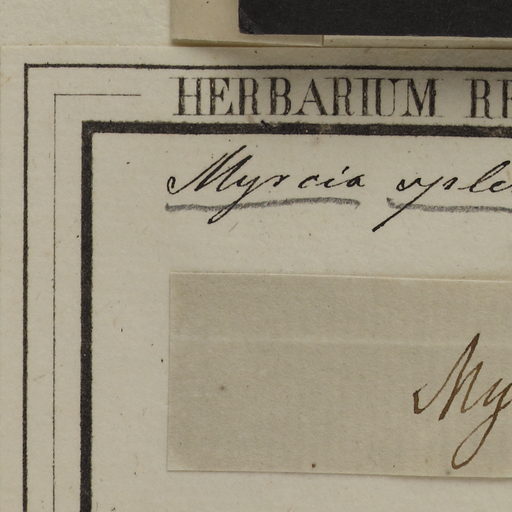 HERBARIUM RE
Myrcia sple
My